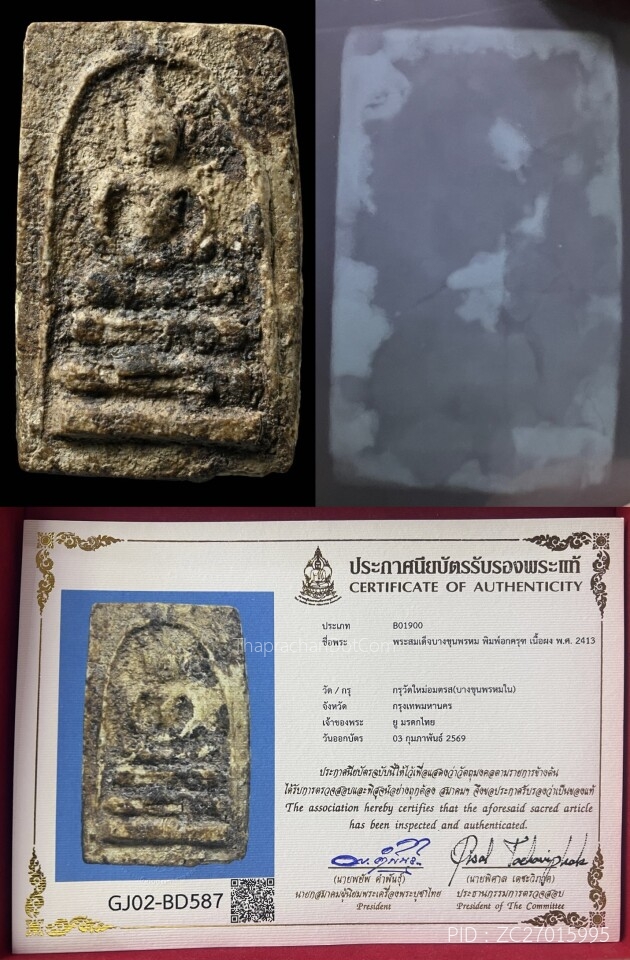 ประกาศนียบัตรรับรองพระแท้
CERTIFICATE OF AUTHENTICITY
ประเภท B01900
ชื่อพระ พระสมเด็จบางขุนพรหม พิมพ์อกครุฑ เนื้อผง พ.ศ. 2413
วัด / กรุ กรุวัดใหม่อมตรส(บางขุนพรหมใน)
จังหวัด กรุงเทพมหานคร
เจ้าของพระ ยู มรดกไทย
วันออกบัตร 03 กุมภาพันธ์ 2569
ประกาศนียบัตรฉบับนี้ให้ไว้เพื่อแสดงว่าวัตถุมงคลตามรายการข้างต้น
ได้รับการตรวจสอบและพิสูจน์อย่างถูกต้อง สมาคมฯ จึงขอประกาศรับรองว่าเป็นของแท้
The association hereby certifies that the aforesaid sacred article
has been inspected and authenticated.
(นายพยัพ คำพันธุ์)
นายกสมาคมผู้นิยมพระเครื่องพระบูชาไทย
President
(นายพิศาล เตชะวิภาค)
ประธานกรรมการตรวจสอบ
President of The Committee
GJ02-BD587
ThaprachanDotCom
PID : ZC27015995